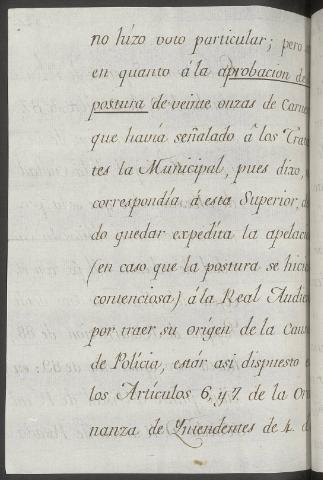 no hizo voto particular; pero
en quanto á la aprobacion de
postura de veinte onzas de Carne
que havia señalado á los Tra
tes la Municipal, pues dixo,
correspondía á esta Superior,
do quedar expedita la apelac
(en caso que la postura se hici
contenciosa) á la Real Audie
por traer su origen de la Caus
de Policia, estár asi dispuesto
los Articulos 6, y 7. de la Or
nanza de Yntendentes de 4. d